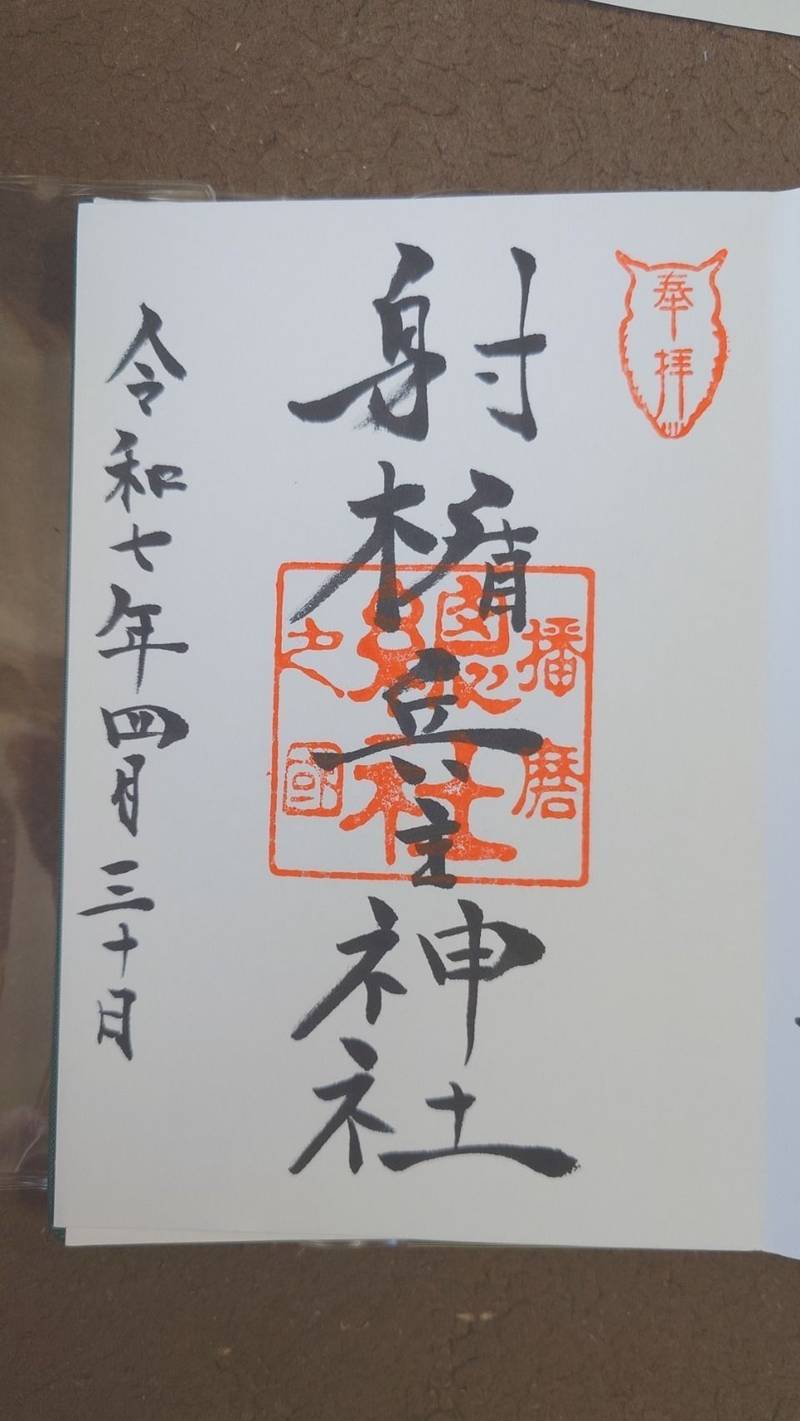 奉拝
射楯兵主神社
播磨
國総社
之国
令和七年四月三十日